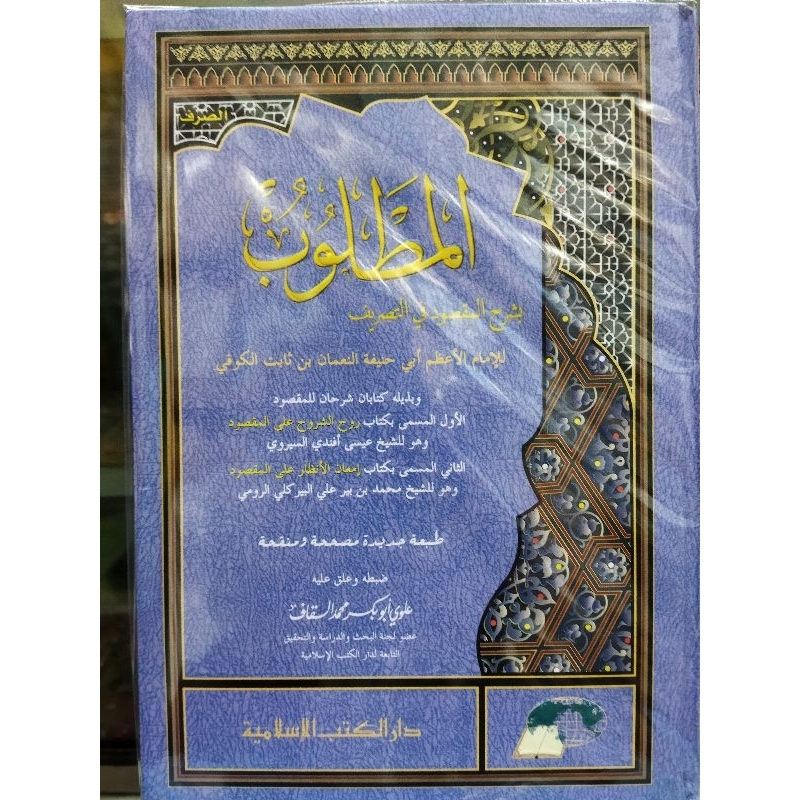 الصرف
المطلوب
بشرح المقصود في التصريف
للإمام الأعظم أبي حنيفة النعمان بن ثابت الكوفي
وبذيله كتابان شرحان للمقصود
الأول المسمى بكتاب روح الشروح على المقصود
وهو للشيخ عيسى أفندي السيروي
الثاني المسمى بكتاب إمعان الأنظار على المقصود
وهو للشيخ محمد بن بير علي البيركلي الرومي
طبعة جديدة مصححة ومنقحة
ضبطه وعلق عليه
علوي أبو بكر محمد السقاف
عضو لجنة البحث والدراسة والتحقيق
التابعة لدار الكتب الإسلامية
دار الكتب الإسلامية